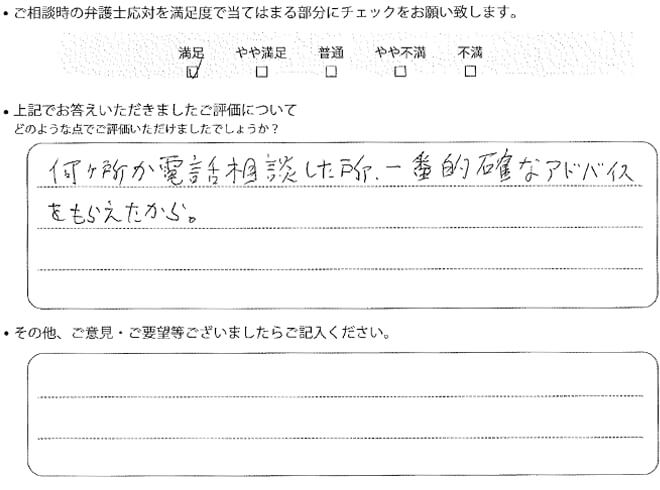 • ご相談時の弁護士応対を満足度で当てはまる部分にチェックをお願い致します。
満足 やや満足 普通 やや不満 不満
• 上記でお答えいただきましたご評価について
どのような点でご評価いただけましたでしょうか？
何ヶ所か電話相談した所、一番的確なアドバイス
をもらえたから。
• その他、ご意見・ご要望等ございましたらご記入ください。